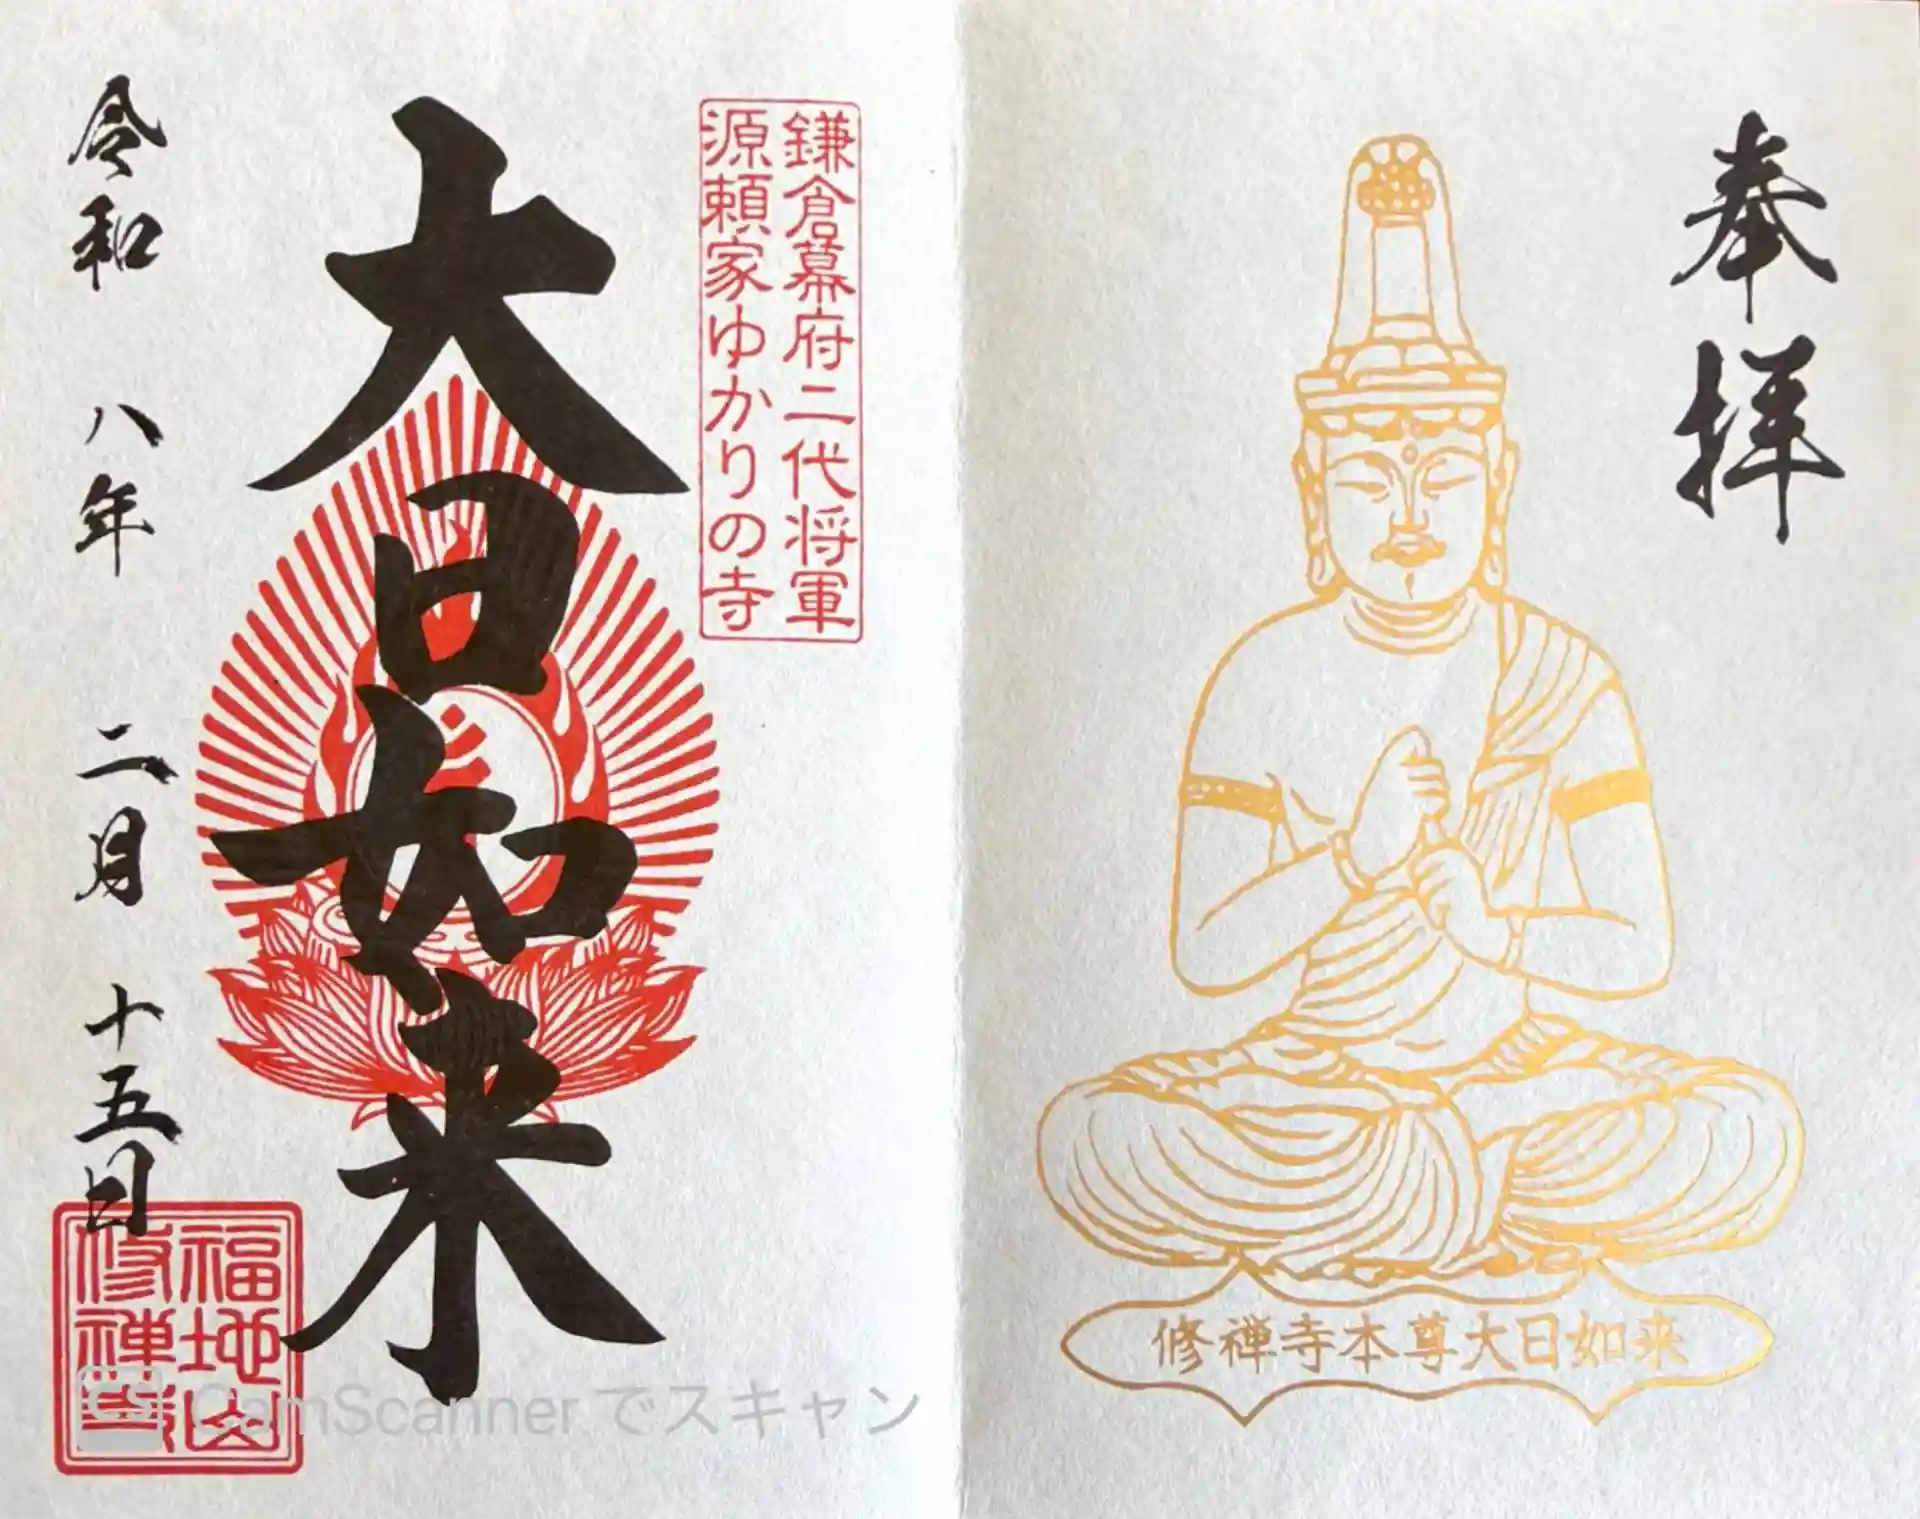 奉拝
修禅寺本尊大日如来
鎌倉幕府二代将軍
源頼家ゆかりの寺
大日如来
令和八年二月十五日
福地山
修禅寺
CS CamScannerでスキャン